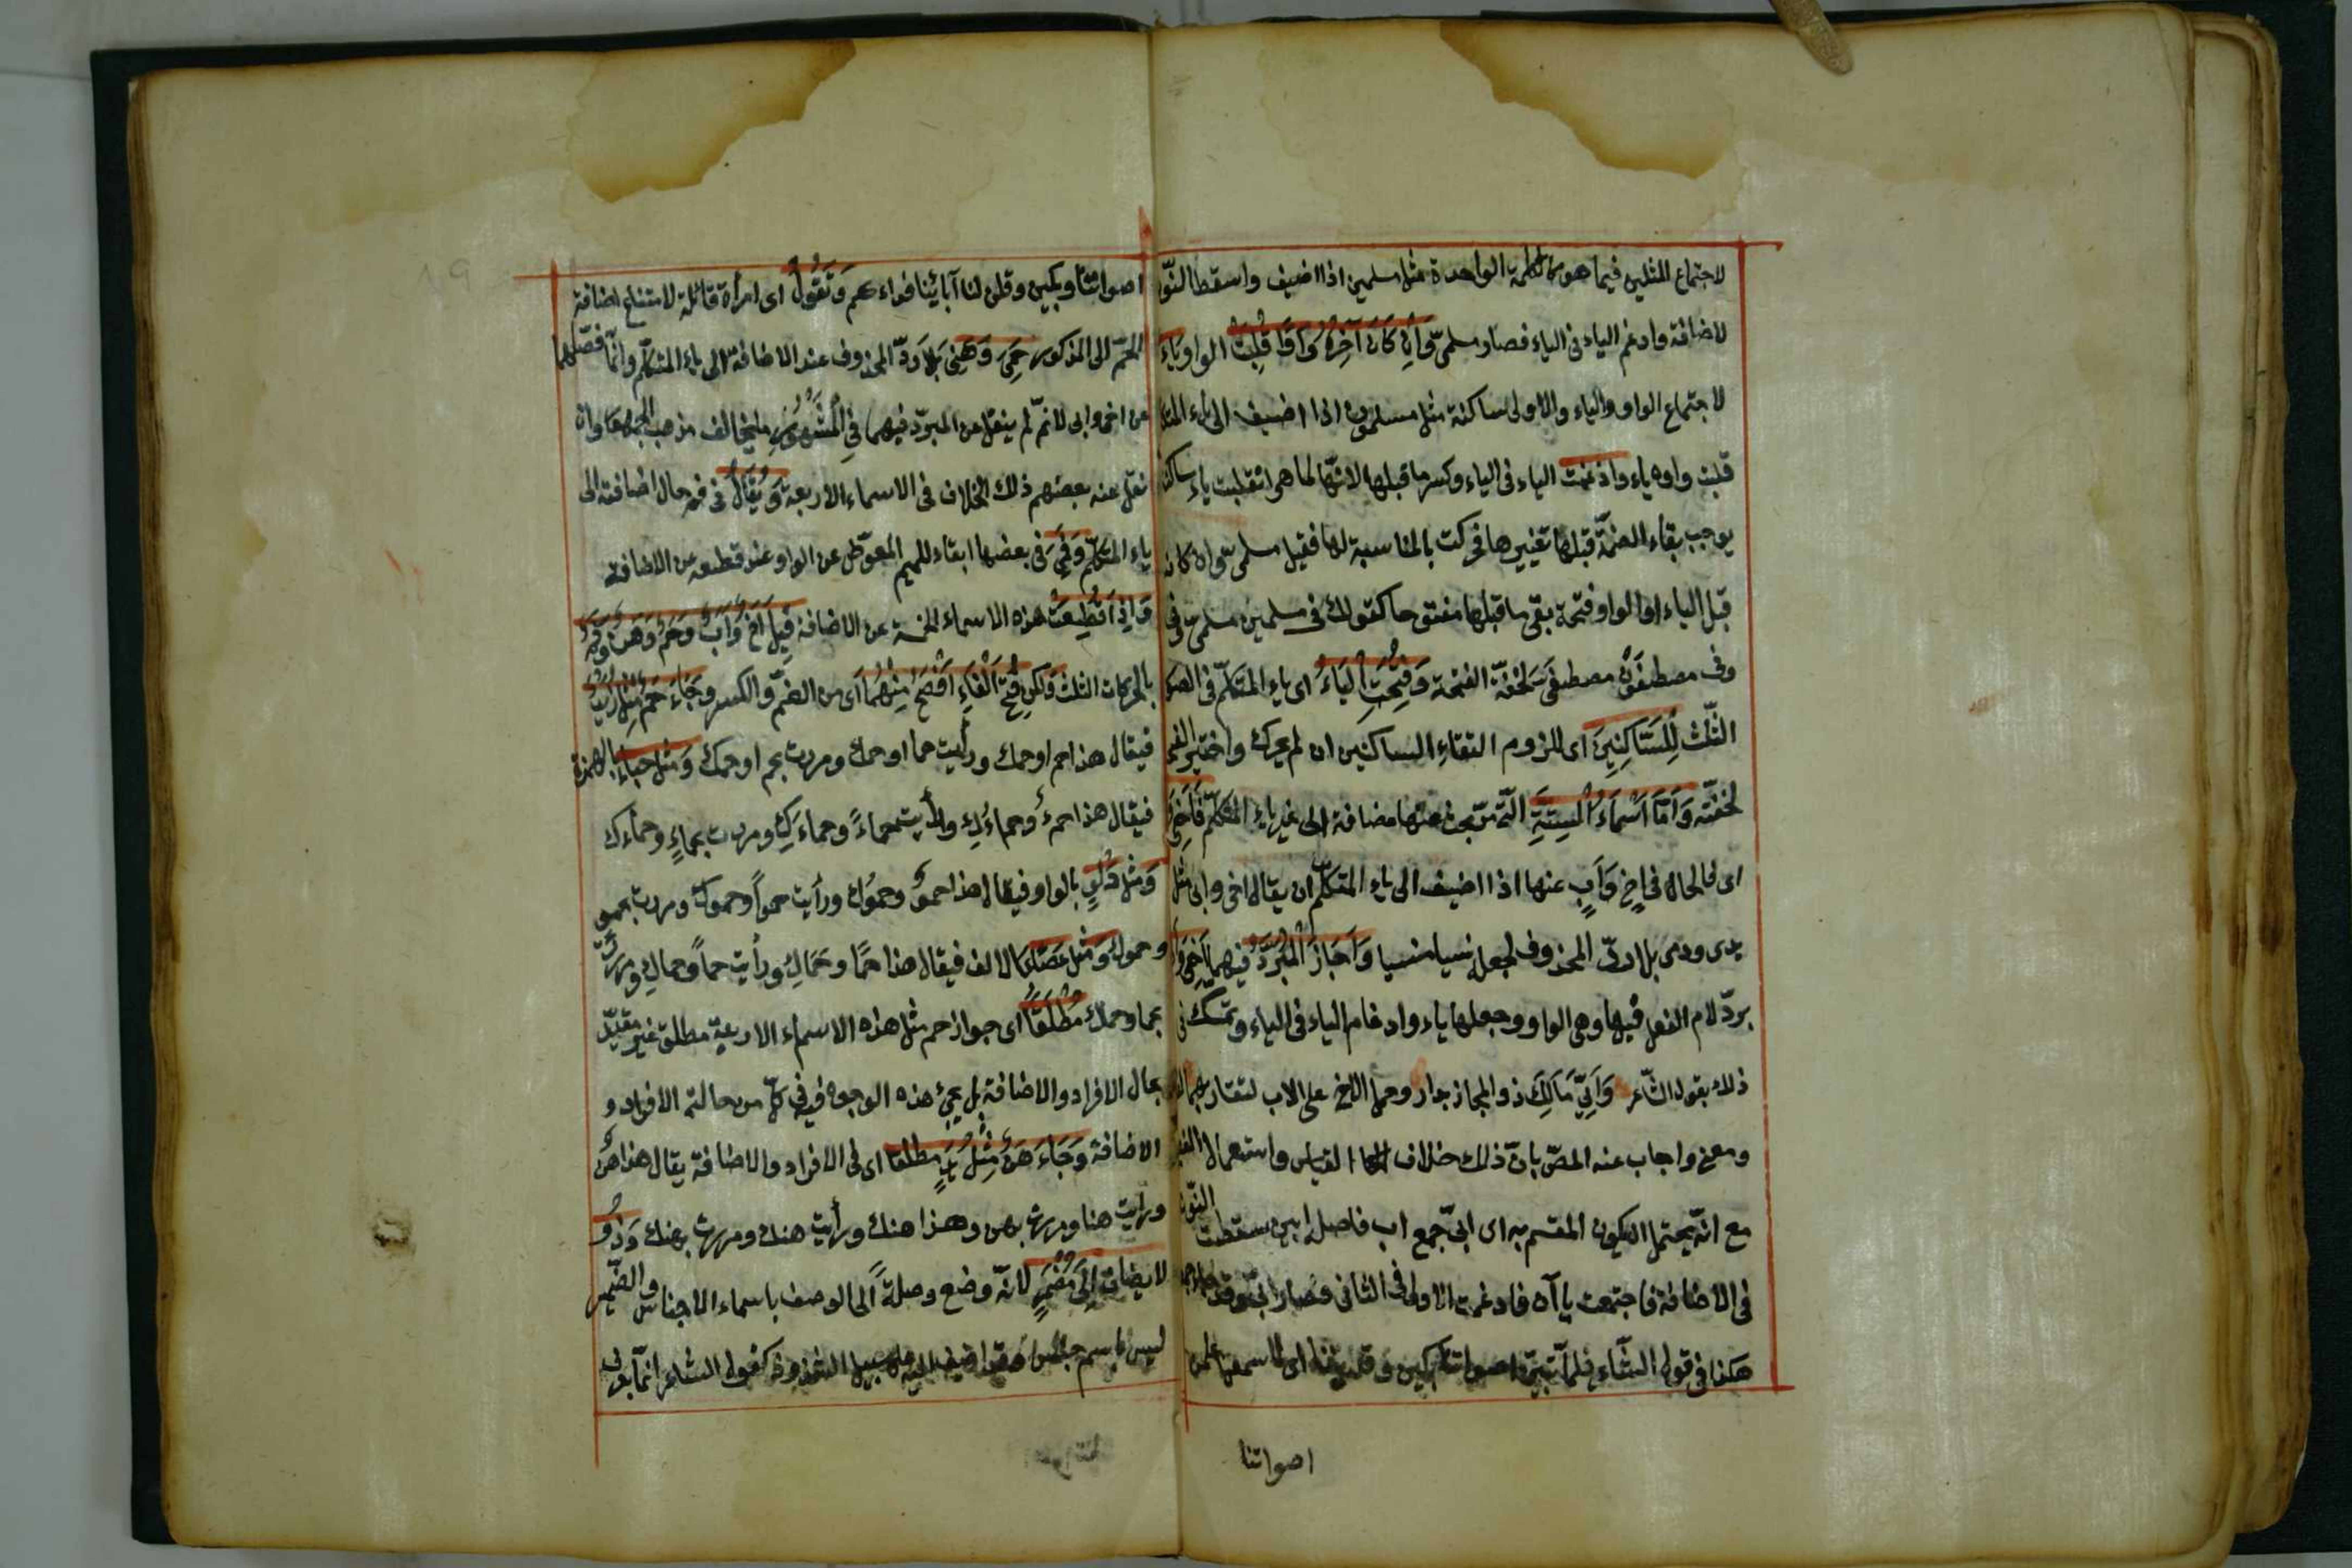 لاجتماع المثلين فيما هو كالكلمة الواحدة مثل مسلمين اذا اضيف واسقط النون
لاضافة وادغم الياء فى الياء فصار مسلمىّ وَاِنْ كَانَ آخِرُهُ وَاوًا قُلِبَتْ الواو يَاءً
لاجتماع الواو والياء والاولى ساكنة مثل مسلمون اذا اضيف الى ياء المتكلم
قلبت واوه ياء وادغمت الياء فى الياء وكسر ما قبلها لانها لما هى انقلبت ياء ساكنة
يوجب بقاء الضمّة قبلها تغييرها فحركت بالمناسبة لها فقيل مسلمىّ وان كان
قبل الياء او الواو فتحة بقى ما قبلها مفتوحا كقولك فى مسلمين مسلمىّ
وفى مصطفون مصطفىّ لخفّة الفتحة وَفُتِحَتِ الْيَاءُ اى ياء المتكلّم فى الصور
الثّلث لِلسَّاكِنَيْنِ اى للزوم التقاء الساكنين ان لم يحرك واختير الفتح
لخفّته وَاَمَّا اَسْمَاءُ السِّتَّةِ الّتى مرّ بحث عنها مضافة الى غير ياء المتكلّم فَاَخِى
اى فالحال فى اخ وَاَبٍ عنها اذا اضيف الى ياء المتكلّم ان يقال اخى وابى مثل
يدى ودمى بلا ردّ المحذوف لجعله نسيا منسيا وَاَجَازَ الْمُبَرِّدُ فيهما اَخِىَّ
بردّ لام الفعل فيها وهى الواو وجعلها ياء وادغام الياء فى الياء وتمسك فى
ذلك بقول الشّاعر وَاَبِىَّ مَالَكَ ذو المجاز بدار وحمل الاخ على الاب لتقاربهما
ومعنى واجاب عنه المصّ بانّ ذلك خلاف القياس واستعمال
مع انّه يحتمل ان يكون المقسم به اى ابىّ جمع اب فاصله ابين سقطت النّون
فى الاضافة فاجتمعت ياآن فادغمت الاولى فى الثانى فصار ابىّ وقد جاء
هكذا فى قول الشّاعر فلمّا تبيّن اصواتنا بكين وفديننا اى لما سمعن
اصواتنا
اصواتنا وبكين وقلن لنا آبائنا فداءكم وَتَقُولُ اى امرأة قائلة لامتناع اضافة
الحم الى المذكور حَمِى وَهَنِى بلا ردّ المحذوف عند الاضافة الى ياء المتكلّم وانّما فصّلهما
عن اخى وابى لانّه لم ينقل عن المبرّد فيهما فِى الْمَشْهُورِ ما يخالف مذهب الجمهور وان
نقل عنه بعضهم ذلك الخلاف فى الاسماء الاربعة وَيُقَالُ فى فم حال اضافته الى
ياء المتكلّم وَفِىَّ فى بعضها ابقاء للميم المعوّض عن الواو عند قطعه عن الاضافة
وَاِذَا قُطِعَتْ هذه الاسماء الخمسة عن الاضافة قِيلَ اَخٌ وَاَبٌ وَحَمٌ وَهَنٌ وَفَمٌ
بالحركات الثلث وَلٰكِنْ فَتْحُ الْفَاءِ اَفْصَحُ مِنْهُمَا اى من الضمّ والكسر وَجَاءَ حَمٌ مِثْلُ يَدٍ
فيقال هذا حم او حمك ورأيت حما او حمك ومررت بحم او حمك وَمِثْلَ خَبَاءٍ بالهمزة
فيقال هذا حمءٌ وحماءُكِ ورأيت حماءً وحماءَكِ ومررت بحماءٍ وحمائك
وَمِثْلَ دَلْوٍ بالواو فيقال هذا حموٌ وحموُك ورأيت حموًا وحموك ومررت بحمو
وحموك وَمِثْلَ عَصًا بالالف فيقال هذا حمًا وحماك ورأيت حمًا وحماك ومررت
بحما وحماك مُطْلَقًا اى جواز حم مثل هذه الاسماء الاربعة مطلق غير مقيّد
بحال الافراد والاضافة بل يجئ هذه الوجوه فيه فى كلّ من حالتى الافراد و
الاضافة وَجَاءَ هَنٌ مِثْلُ يَدٍ مطلقا اى فى الافراد والاضافة يقال هذا هن
ورأيت هنا ومررت بهن وهذا هنك ورأيت هنك ومررت بهنك وَذُو
لا يضاف اِلَى مُضْمَرٍ لانّه وضع وصلةً الى الوصف باسماء الاجناس والضّمير
ليس باسم جنس وقد اضيف اليه على سبيل الشذوذ كقول الشاعر انّما يعرف